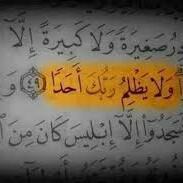 صَغِيرَةً وَلَا كَبِيرَةً إِلَّآ
وَلَا يَظْلِمُ رَبُّكَ أَحَدًا ٤٩ وَ
سَجَدُوٓا۟ إِلَّآ إِبْلِيسَ كَانَ مِنَ